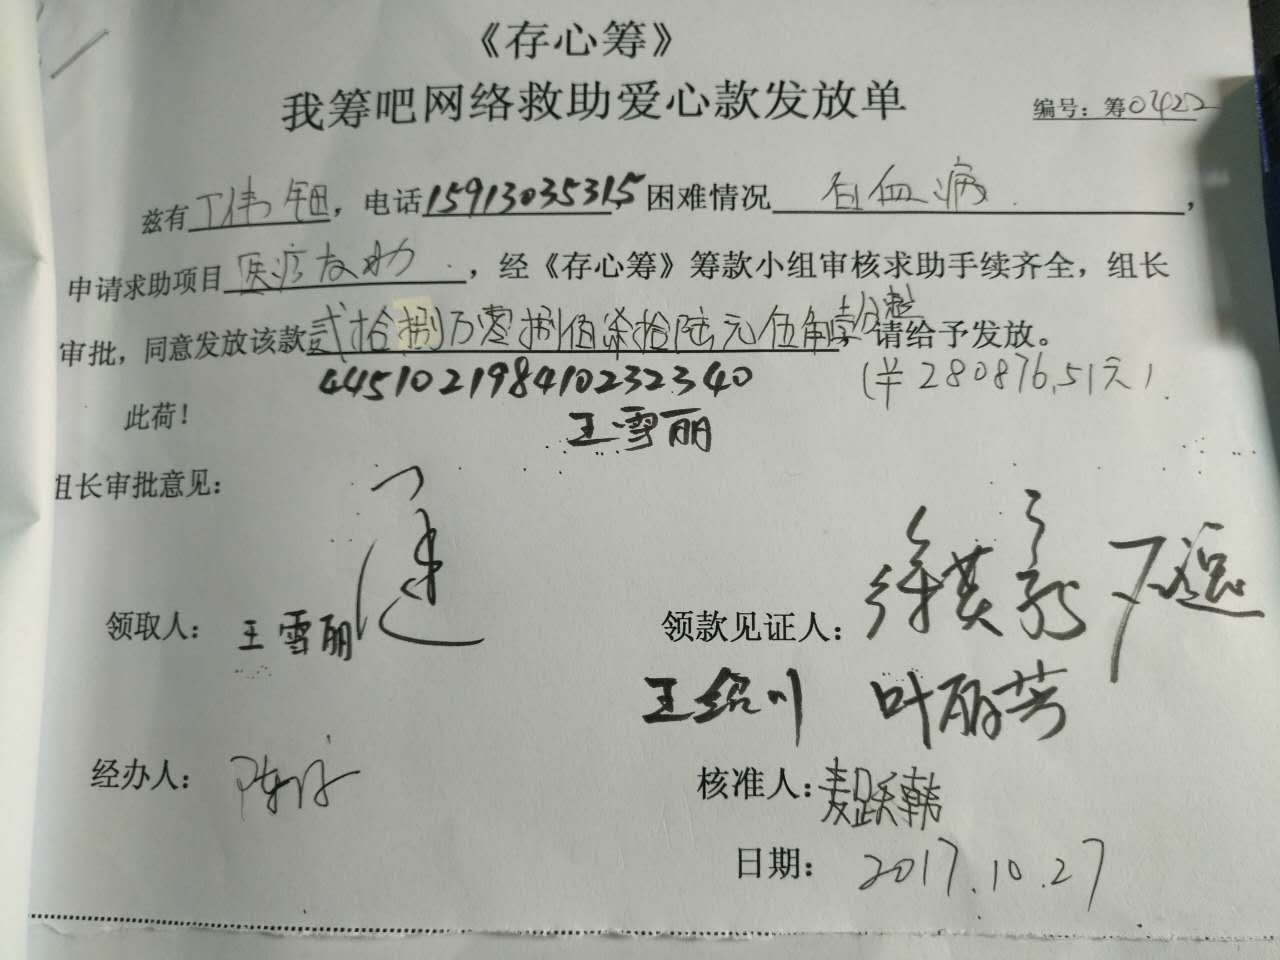 《存心筹》
我筹吧网络救助爱心款发放单
编号：筹01422
兹有丁伟钿，电话15913035315，困难情况 白血病，
申请求助项目医疗救助，经《存心筹》筹款小组审核求助手续齐全，组长
审批，同意发放该款贰拾捌万零捌佰柒拾陆元伍角壹分整 请给予发放。
445102198410232340 (¥280876.51元)
此荷！
王雪丽
组长审批意见：
领取人：王雪丽 领款见证人：徐英
王绍川 叶丽芳
经办人： 核准人：麦跃韩
日期：2017.10.27